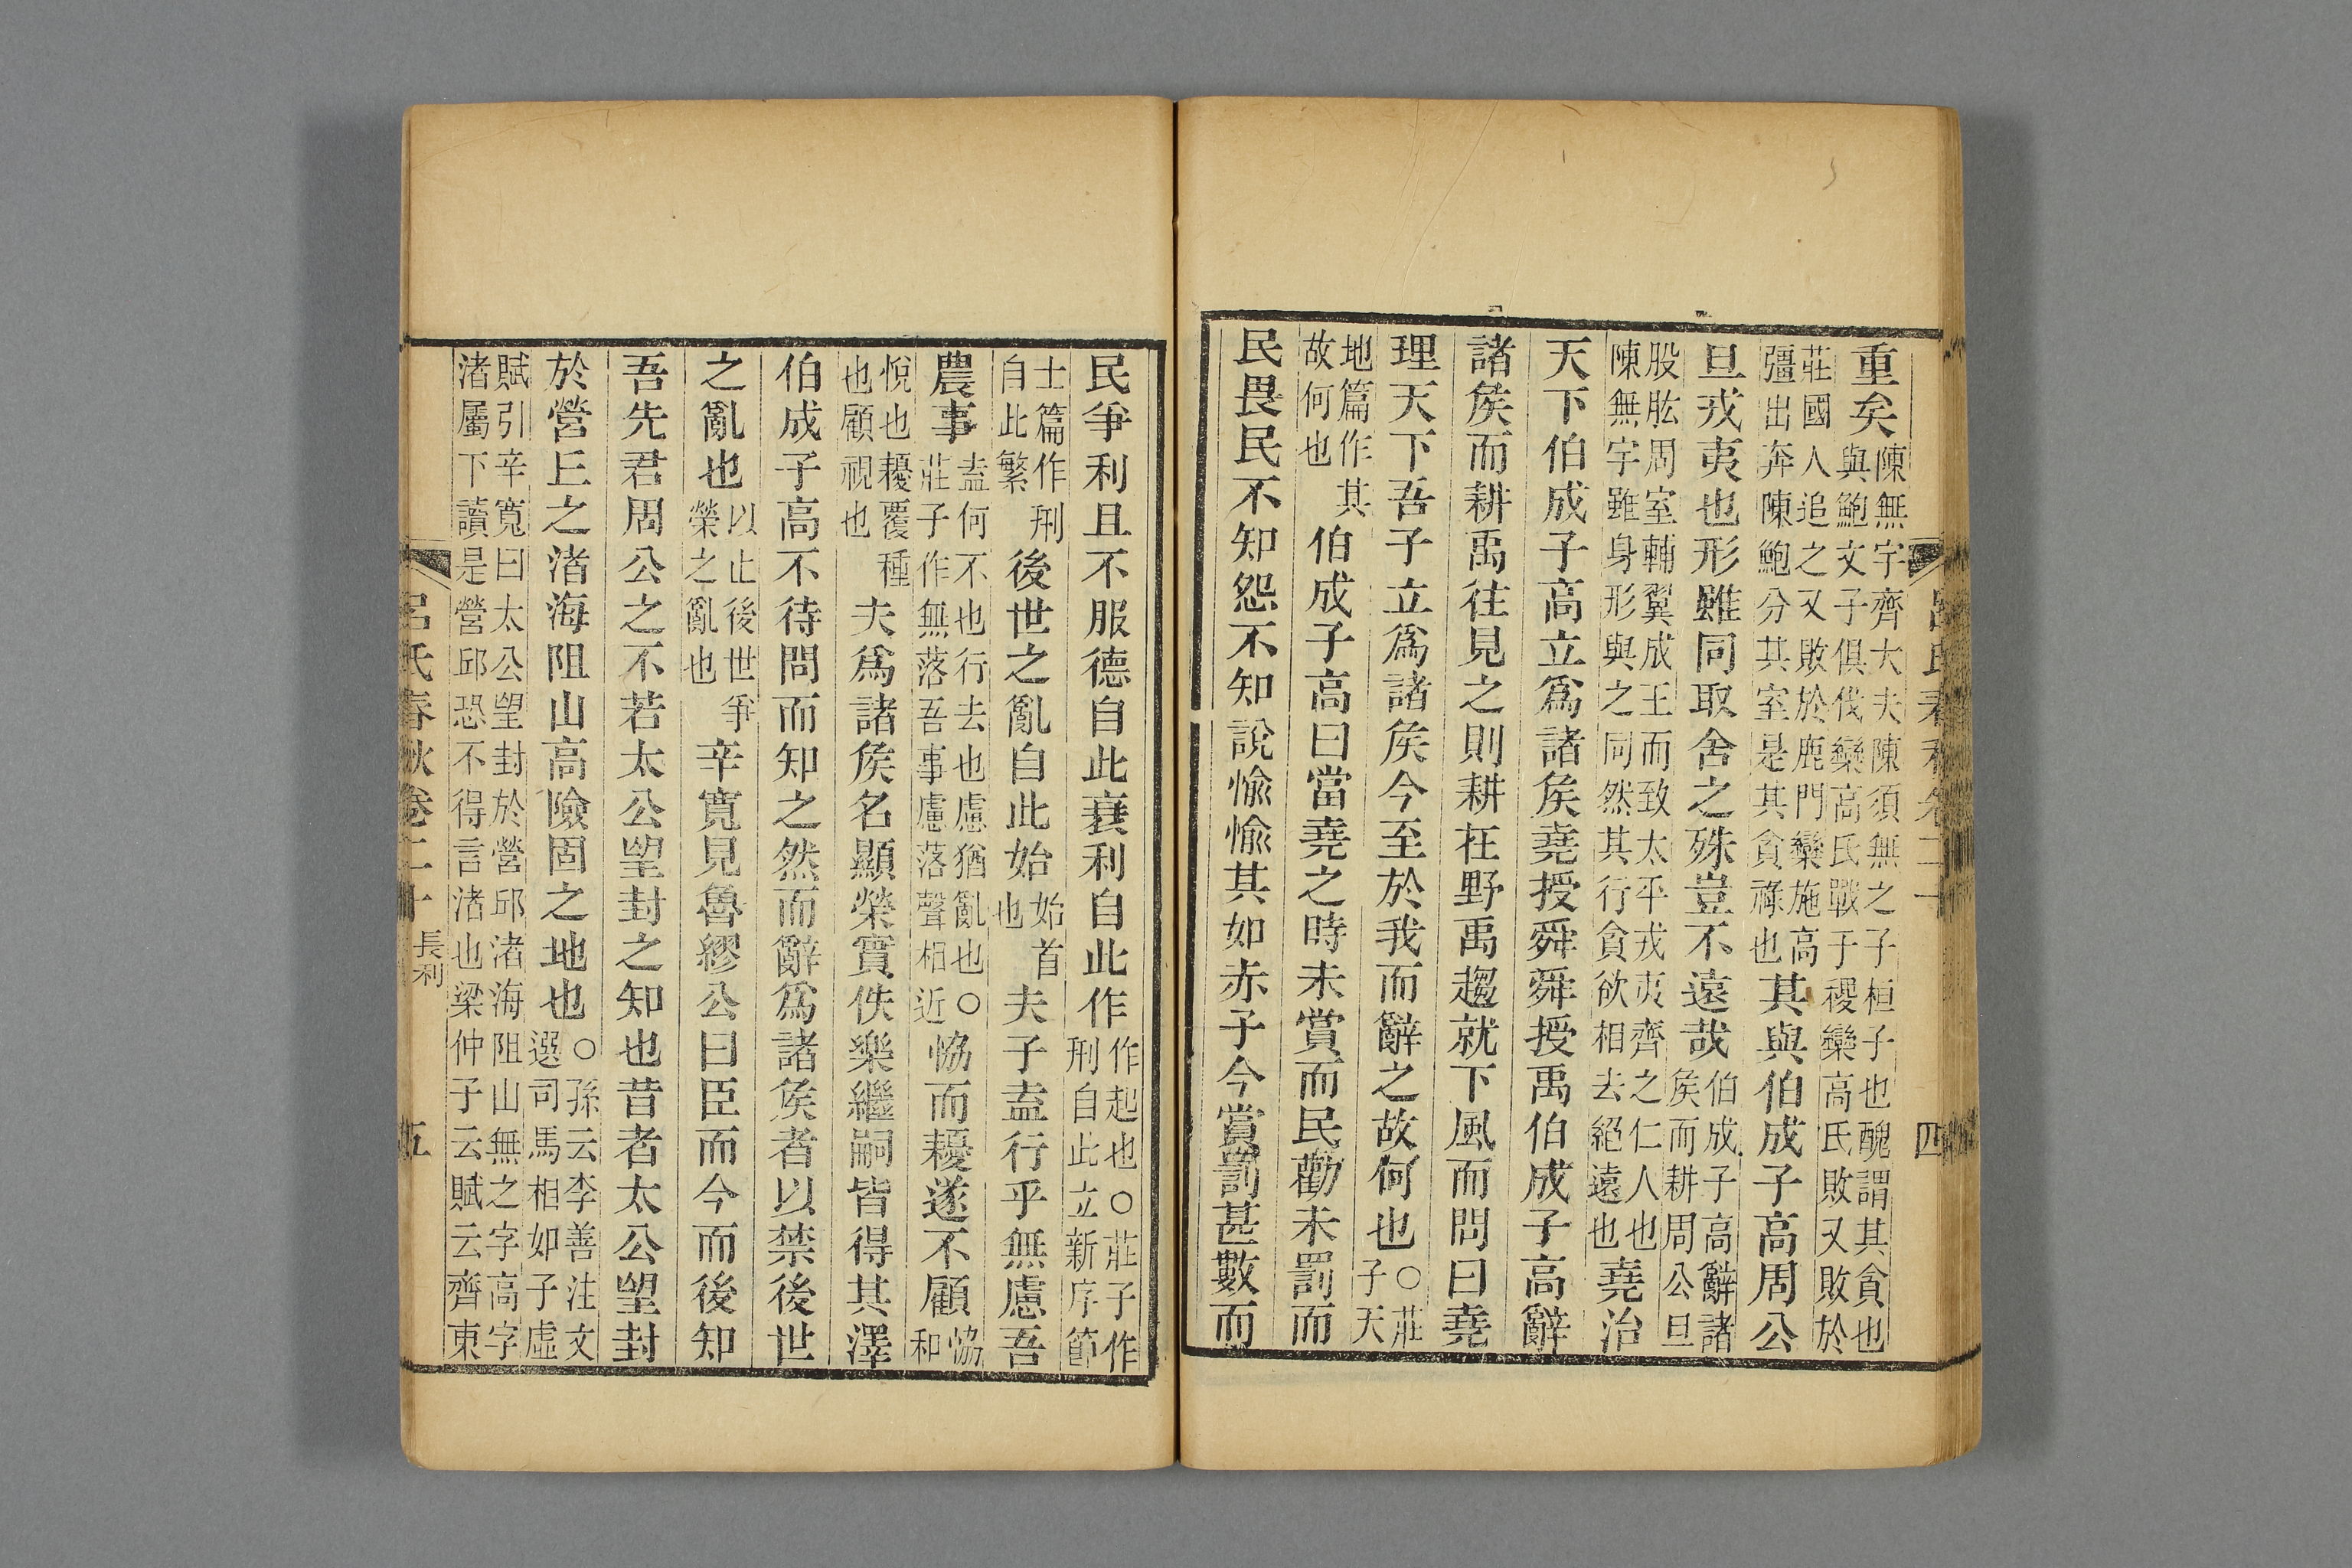 呂氏春秋卷二十 四
重矣陳無宇齊大夫陳須無之子桓子也醜謂其貪也與鮑文子俱伐欒高氏戰于稷欒高氏敗又敗於
莊國人追之又敗於鹿門欒施高彊出奔陳鮑分其室是其貪祿也其與伯成子高周公
旦戎夷也形雖同取舍之殊豈不遠哉伯成子高辭諸矦而耕周公旦
股肱周室輔翼成王而致太平戎夷齊之仁人也陳無宇雖身形與之同然其行貪欲相去絕遠也堯治
天下伯成子高立爲諸矦堯授舜舜授禹伯成子高辭
諸矦而耕禹往見之則耕在野禹趨就下風而問曰堯
理天下吾子立爲諸矦今至於我而辭之故何也○莊子天
地篇作其故何也伯成子高曰當堯之時未賞而民勸未罰而
民畏民不知怨不知說愉愉其如赤子今賞罰甚數而
民爭利且不服德自此衰利自此作作起也○莊子作刑自此立新序節
士篇作刑自此繁後世之亂自此始始首也夫子盍行乎無慮吾
農事盍何不也行去也慮猶亂也○莊子作無落吾事慮落聲相近協而耰遂不顧協和
悅也耰覆種也顧視也夫爲諸矦名顯榮實佚樂繼嗣皆得其澤
伯成子高不待問而知之然而辭爲諸矦者以禁後世
之亂也以止後世爭榮之亂也辛寬見魯繆公曰臣而今而後知
吾先君周公之不若太公望封之知也昔者太公望封
於營丘之渚海阻山高險固之地也○孫云李善注文選司馬相如子虛
賦引辛寬曰太公望封於營邱渚海阻山無之字高字渚屬下讀是營邱恐不得言渚也梁仲子云賦云齊東
呂氏春秋卷二十 長利 五